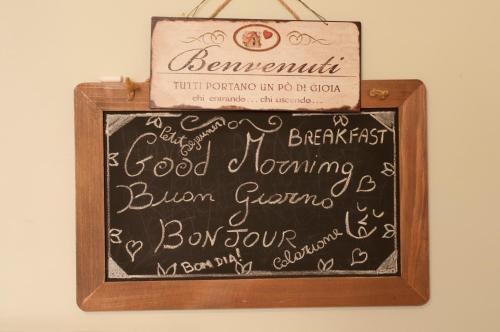 Benvenuti
TUTTI PORTANO UN PÒ DI GIOIA
chi entrando... chi uscendo...
Petit Dejeuner
BREAKFAST
Good Morning
Buon Giorno
BONJOUR
BOM DIA!
Colazione